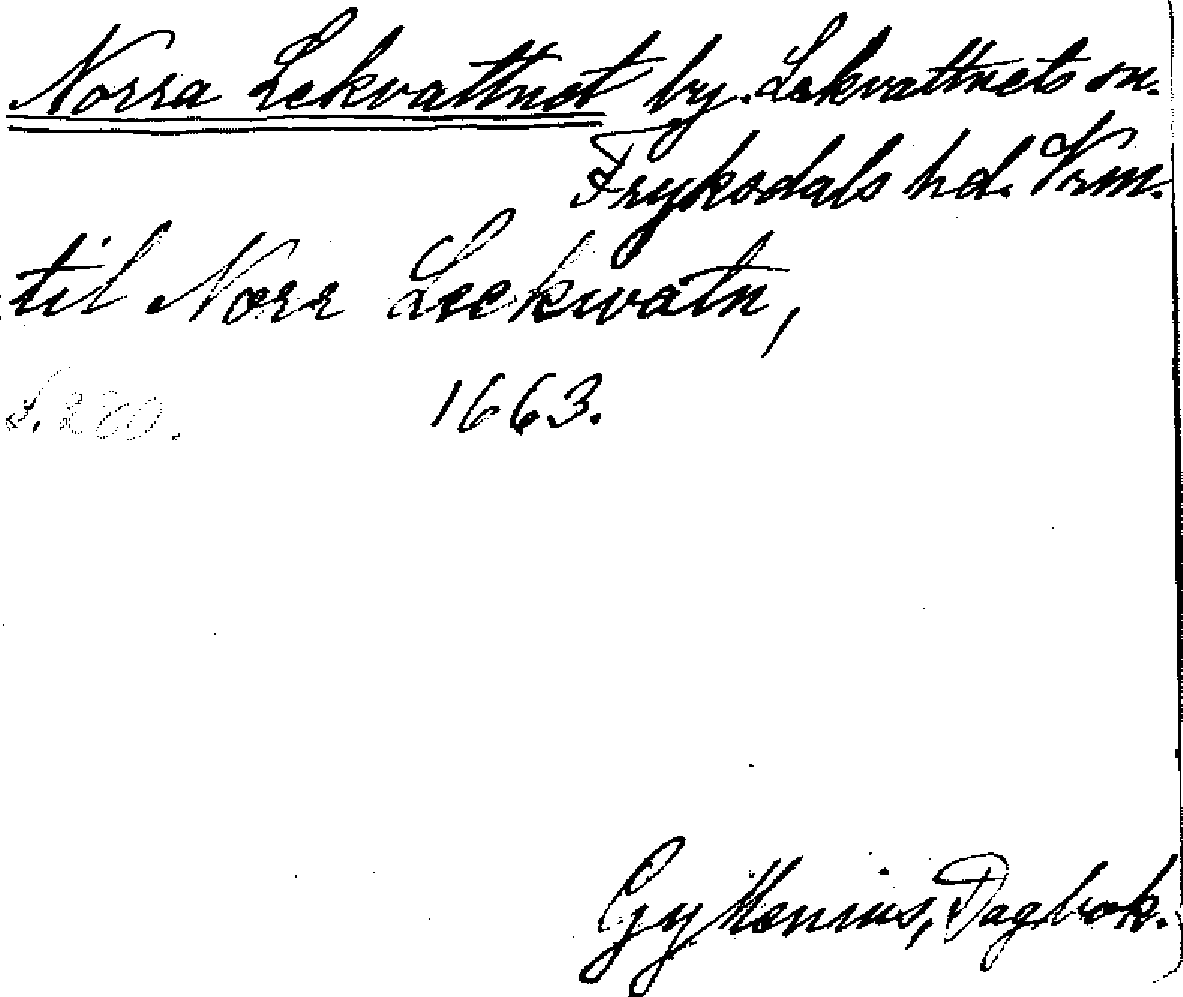 Norra Lekvattnet by. Lekvattnets sn.
Fryksdals hd. Vrm.
til Norr Leekwatn,
S. 220. 1663.
Gyllenius, Dagbok.